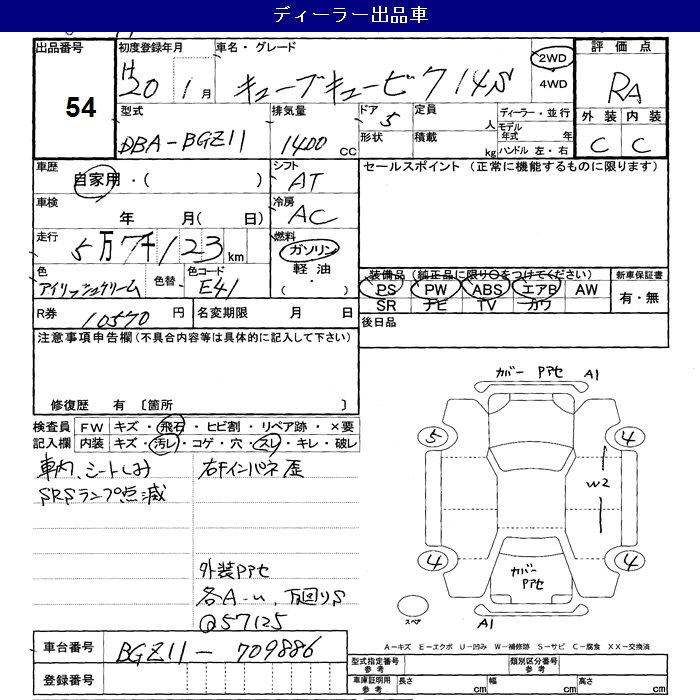 ディーラー出品車
出品番号 初度登録年月 車名・グレード 評価点
54 H20 1月 キューブキュービック 14S 2WD 4WD RA
外装 内装
C C
型式 排気量 ドア 定員 ディーラー・並行
DBA-BGZ11 1400 CC 5 人 モデル年式 年
形状 積載 kg ハンドル 左・右
車歴 シフト セールスポイント (正常に機能するものに限ります)
自家用・( ) AT
車検 冷房
年 月( 日) AC
走行 燃料
5万7千123 km ガソリン
軽油
・( )
色 色替 色コード
アイリッシュクリーム E41
装備品 (純正品に限り○をつけてください) 新車保証書
PS PW ABS エアB AW 有・無
SR ナビ TV カワ
R券 10570 円 名変期限 月 日 後日品
注意事項申告欄 (不具合内容等は具体的に記入して下さい)
修復歴 有 〔箇所 〕
検査員 FW キズ・飛石・ヒビ割・リペア跡・×要
記入欄 内装 キズ・汚レ・コゲ・穴・スレ・キレ・破レ
車内、シートしみ 右Fインパネ歪
SRSランプ点滅
外装PPアセ
各A-U、下回りS
@57125
カバー PPアセ A1
5 4
W2
4 4
カバー PPアセ
スペア A1
A-キズ E-エクボ U-凹み W-補修跡 S-サビ C-腐食 XX-交換済
車台番号 BGZ11-709886
登録番号
型式指定番号 参考 類別区分番号 参考
車庫証明用 参考 長さ cm 幅 cm 高さ cm